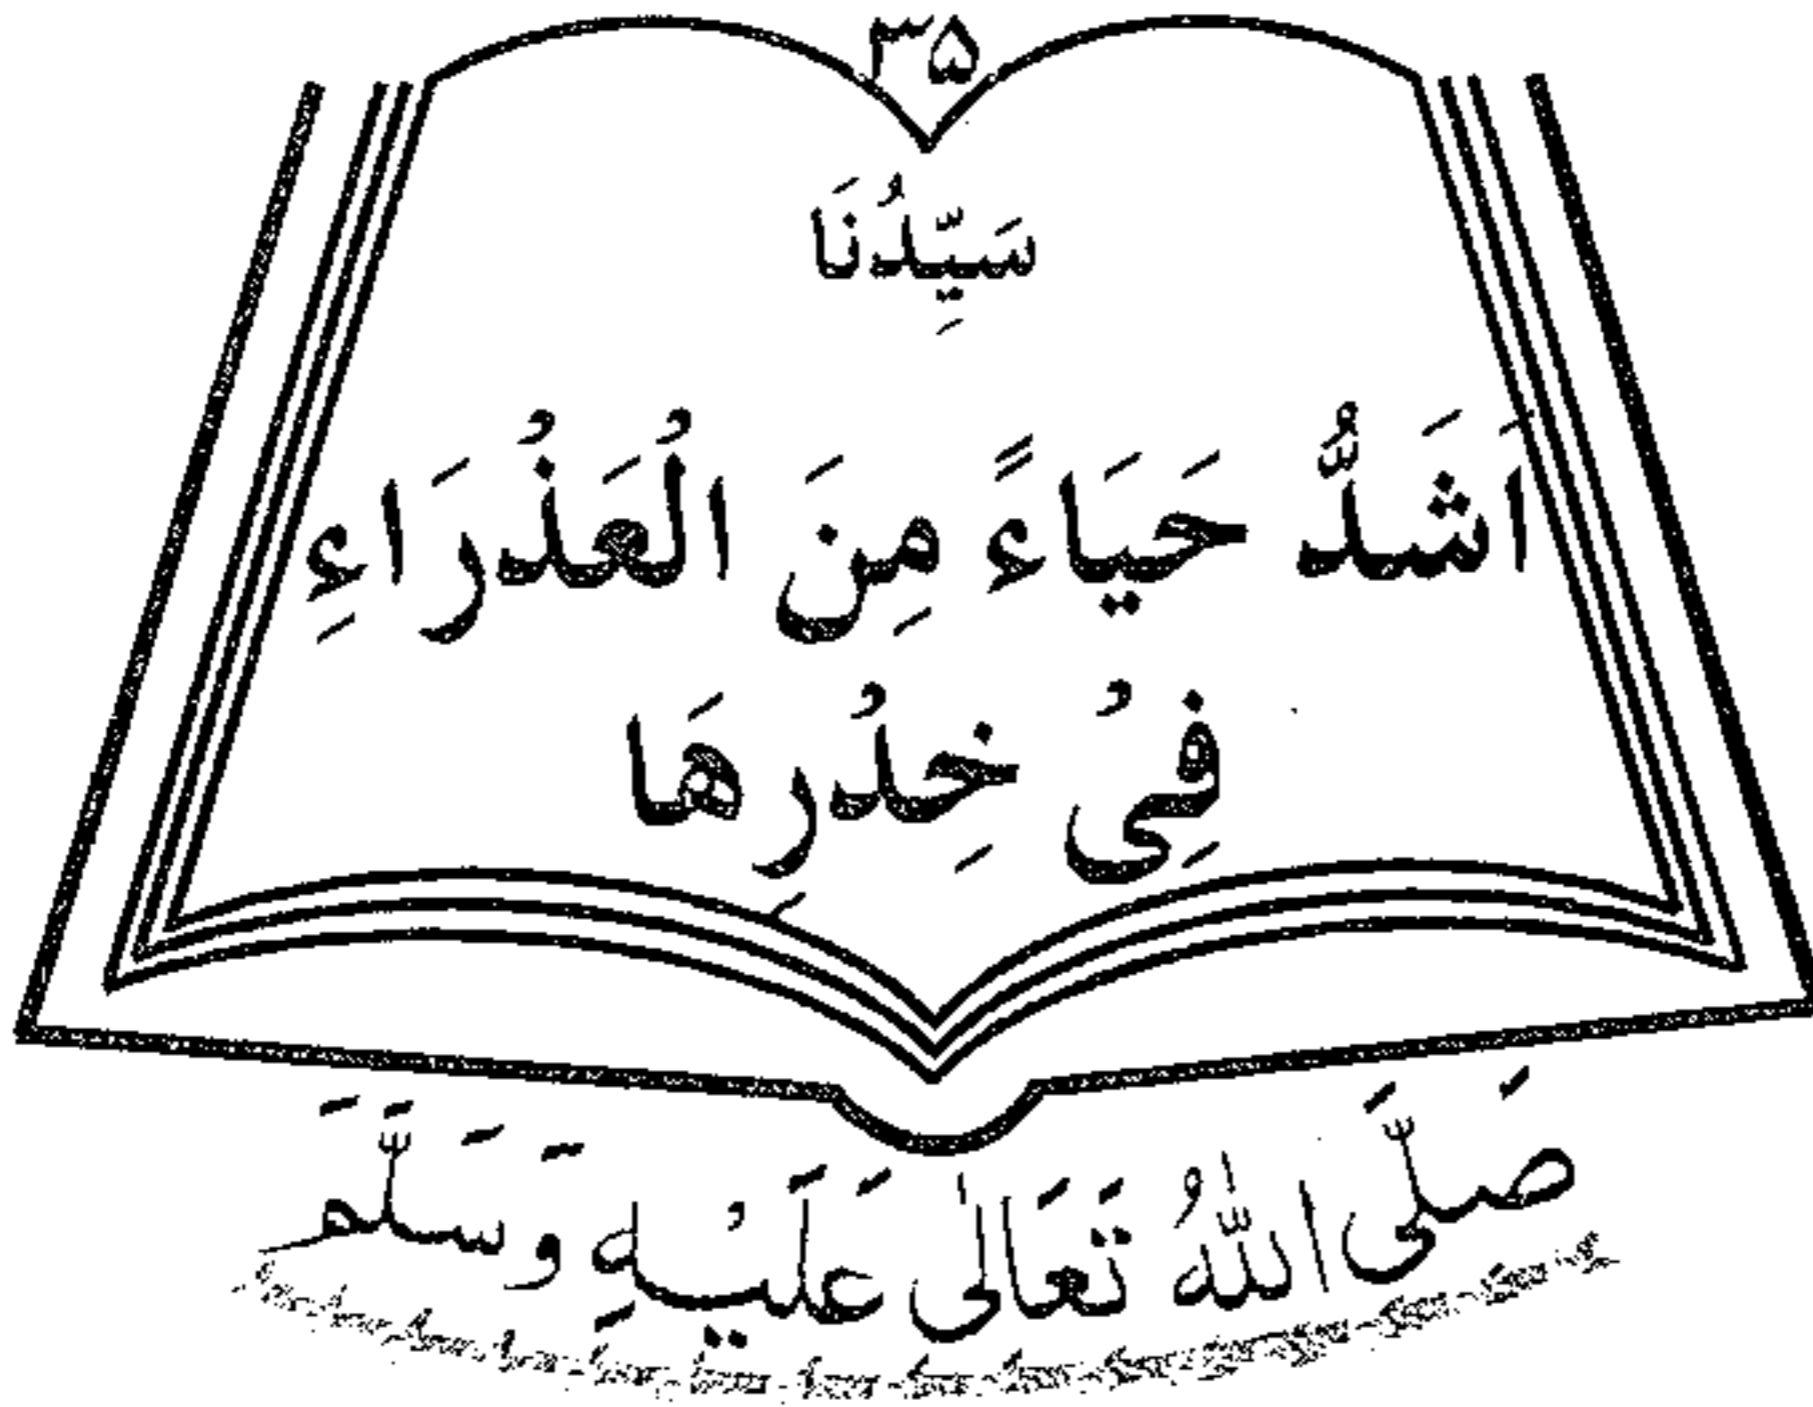 ۳۵
سَيِّدُنَا
اَشَدُّ حَيَاءً مِنَ الْعَذْرَاءِ
فِيْ خِدْرِهَا
صَلَّى اللّٰهُ تَعَالٰى عَلَيْهِ وَسَلَّمَ